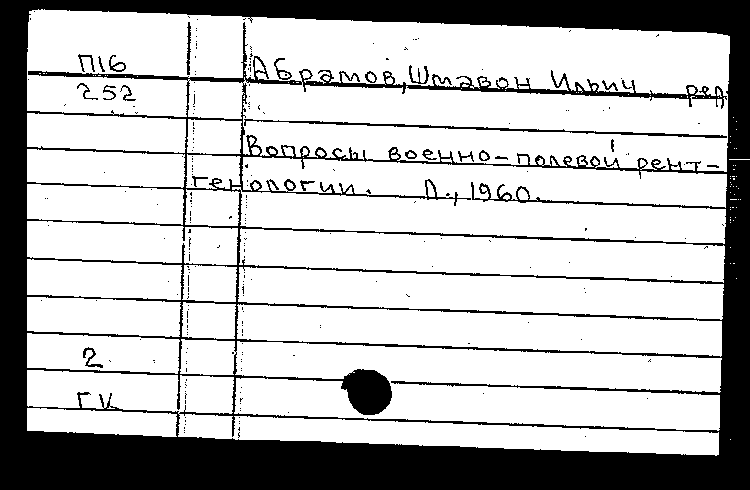 П16
252
Абрамов, Шмавон Ильич, ред
Вопросы военно-полевой рент-
генологии. Л., 1960.
2
ГК